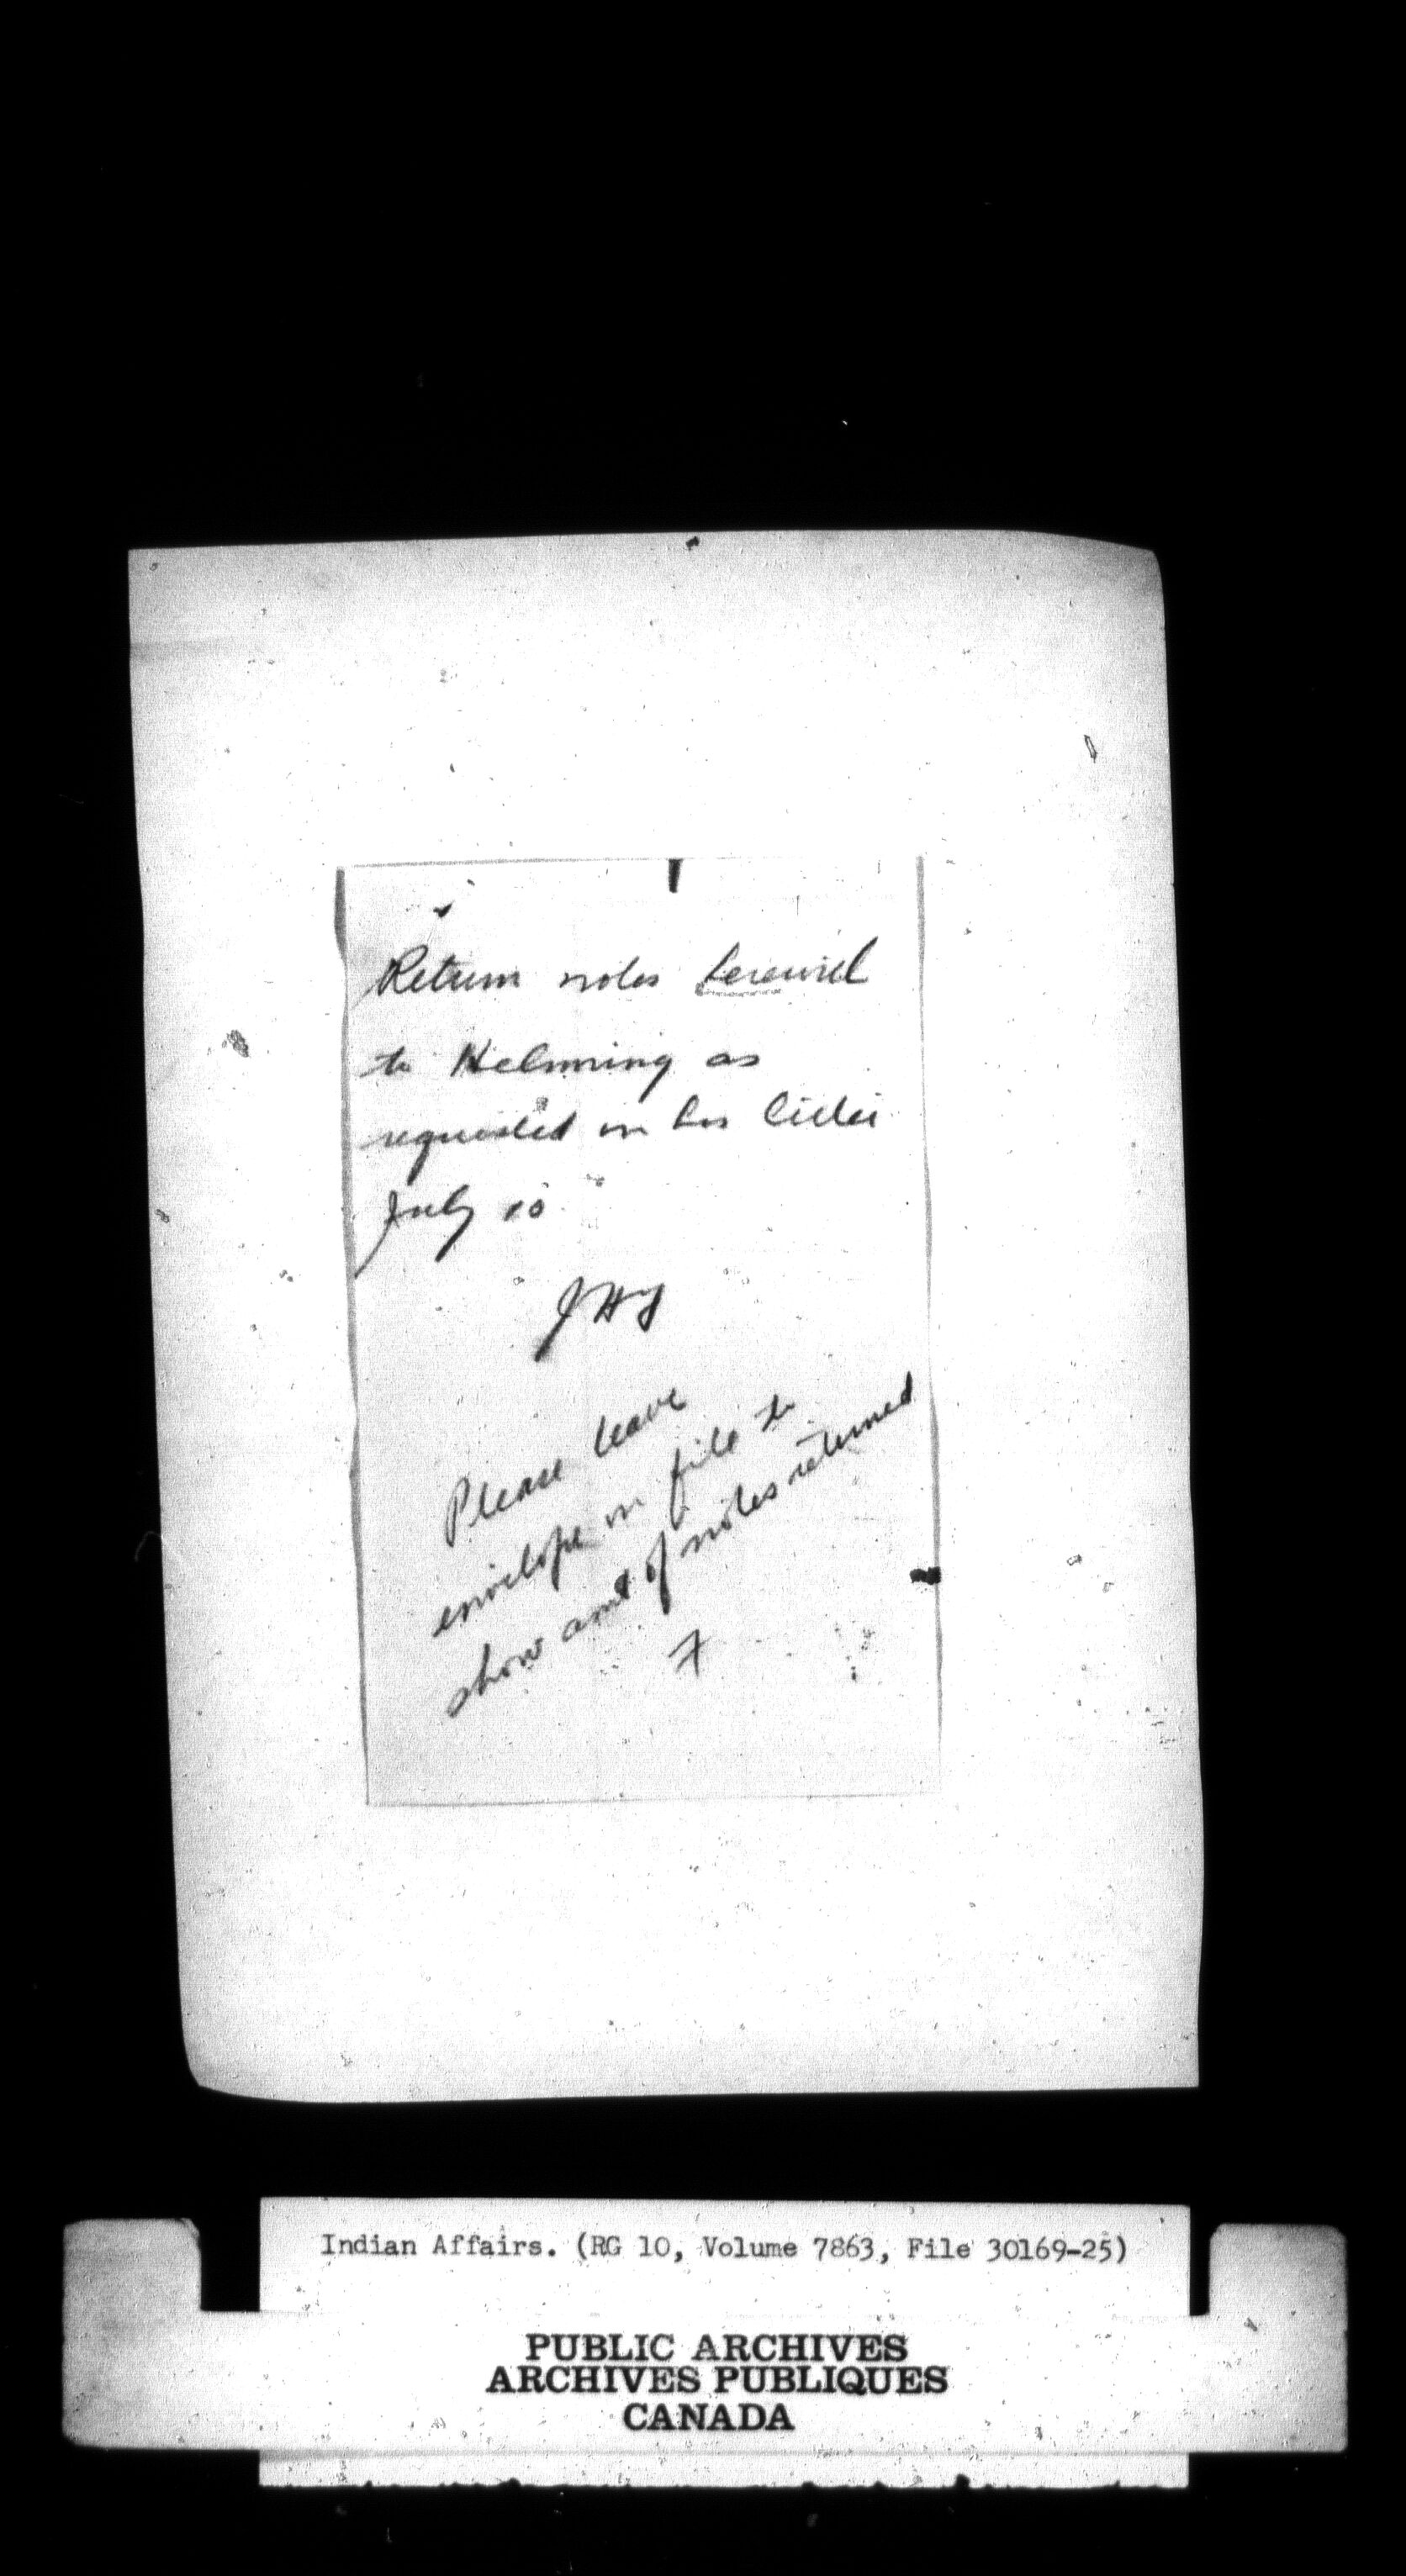 Return notes herewith
to Helmming as
requested in his letter
July 10
Please leave
envelope on file to
show amt of notes returned
Indian Affairs. (RG 10, Volume 7863, File 30169-25)
PUBLIC ARCHIVES
ARCHIVES PUBLIQUES
CANADA